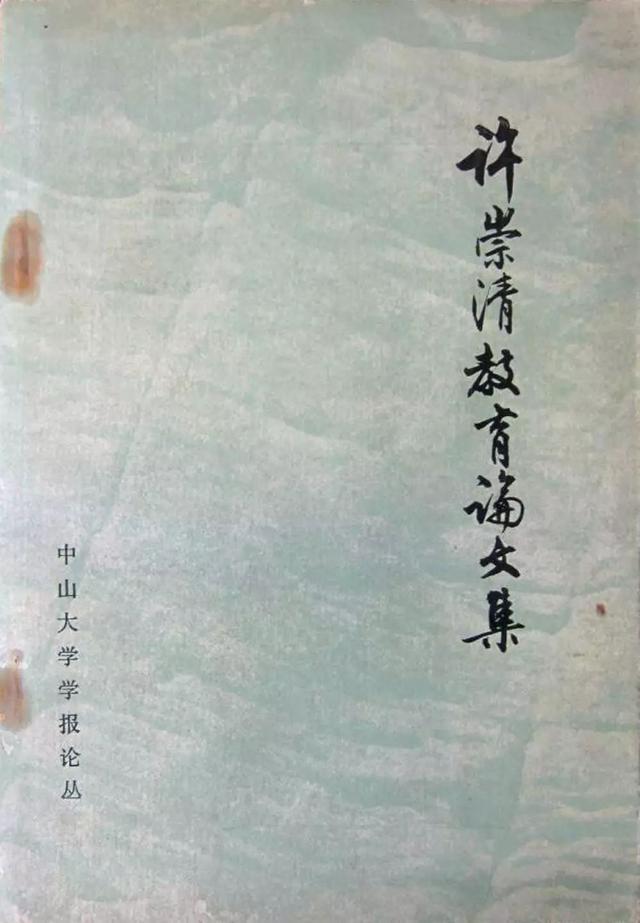 许崇清教育論文集
中山大学学报论丛